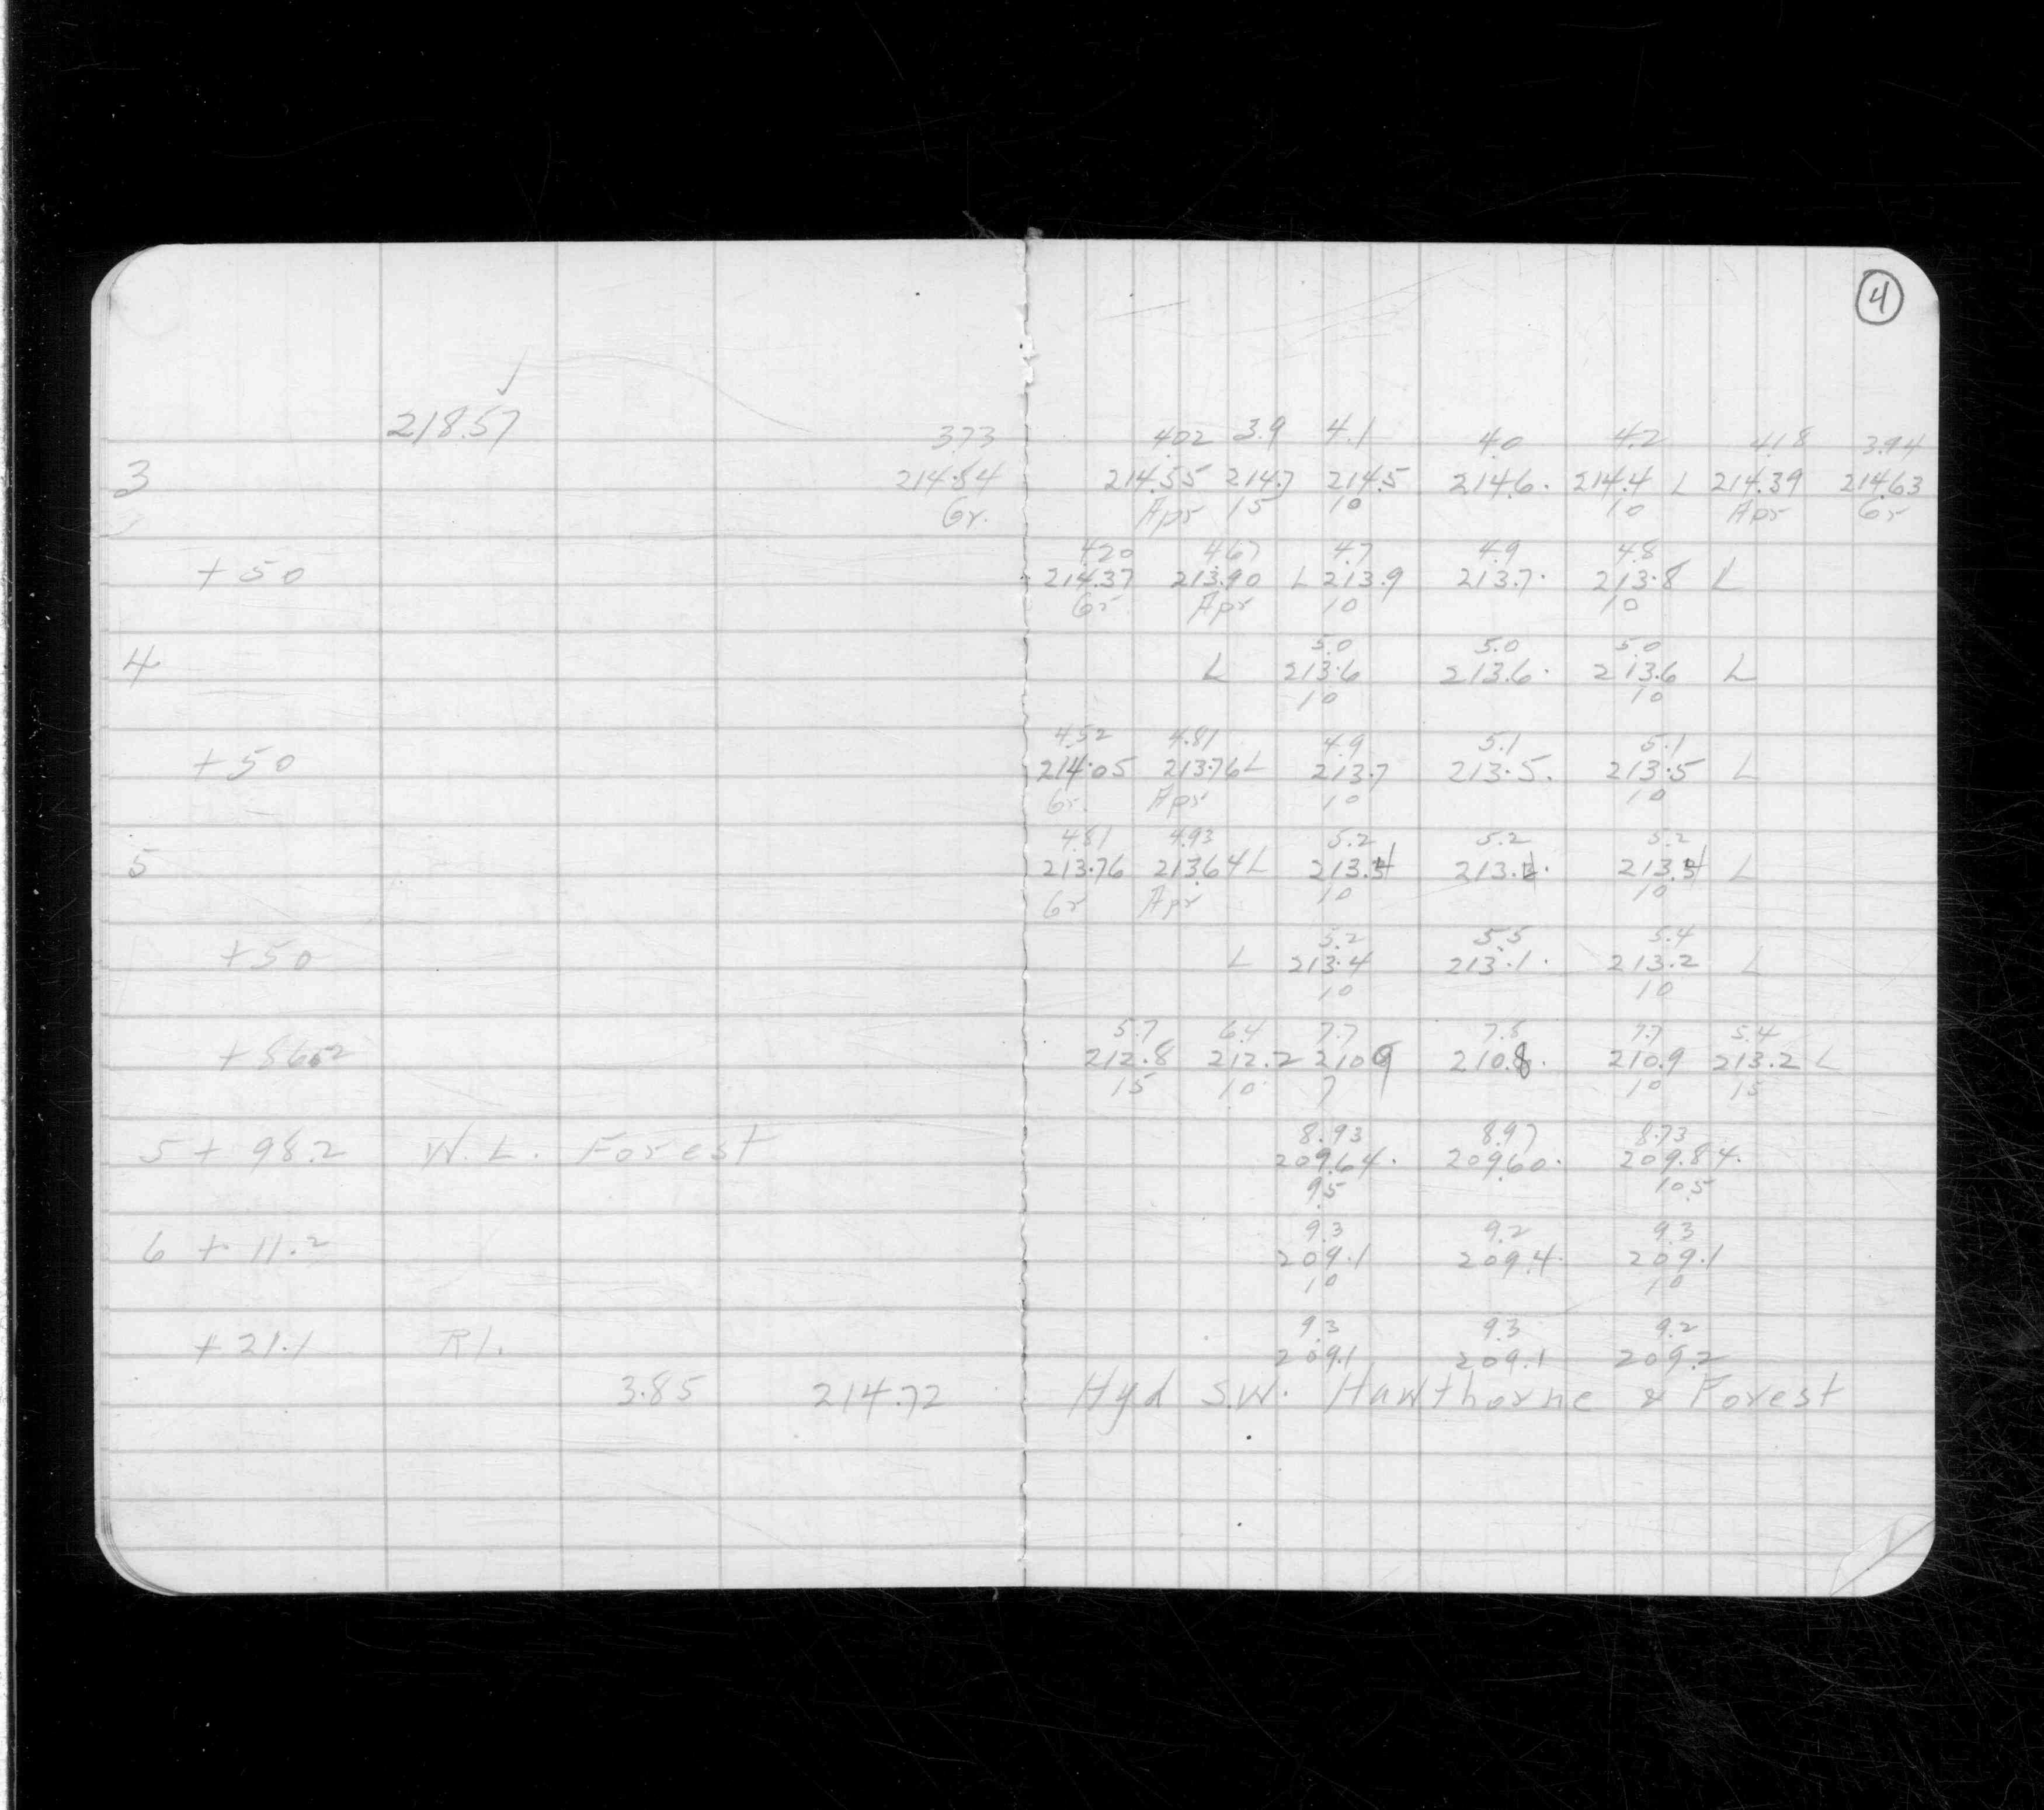 4
218.57 ✓
3.73 4.02 3.9 4.1 4.0 4.2 4.18 3.94
3 214.84 214.55 214.7 214.5 214.6 214.4 L 214.39 214.63
Gr. Apr 15 10 10 Apr Gr
4.20 4.67 4.7 4.9 4.8
+50 214.37 213.90 L 213.9 213.7 213.8 L
Gr Apr 10 10
5.0 5.0 5.0
4 L 213.6 213.6 213.6 L
10 10
4.52 4.81 4.9 5.1 5.1
+50 214.05 213.76 L 213.7 213.5 213.5 L
Gr. Apr 10 10
4.81 4.93 5.2 5.2 5.2
5 213.76 213.64 L 213.4 213.4 L
Gr Apr 10 10
5.2 5.5 5.4
+50 L 213.4 213.1 213.2 L
10 10
5.7 6.4 7.7 7.8 7.7 5.4
+86.2 212.8 212.2 210.9 210.8 210.9 213.2 L
15 10 7 10 15
8.93 8.97 8.73
5 + 98.2 W.L. Forest 209.64 209.60 209.84
9.5 10.5
9.3 9.2 9.3
6 + 11.2 209.1 209.4 209.1
10 10
9.3 9.3 9.2
+ 21.1 209.1 209.1 209.2
3.85 214.72 Hyd S.W. Hawthorne & Forest